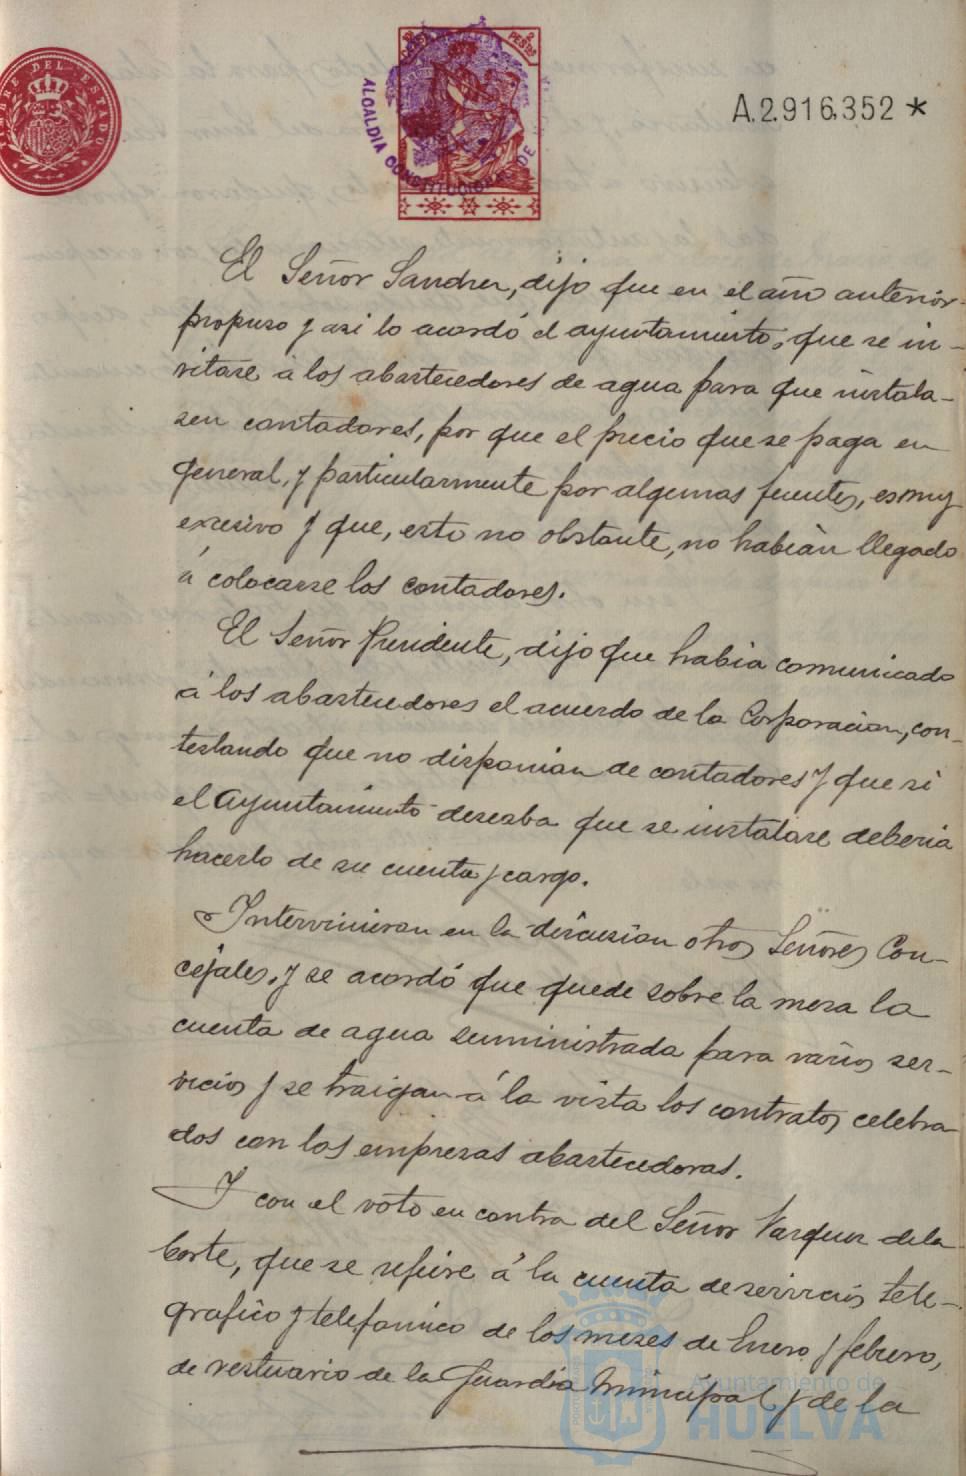 TIMBRE DEL ESTADO
2 PESTAS
ALCALDIA CONSTITUCIONAL DE
A.2.916,352 *
El Señor Sandrer, dijo que en el año anterior
propuso y asi lo acordó el ayuntamiento, que se in-
vitase á los abastecedores de agua para que instala-
sen contadores, por que el precio que se paga en
general, y particularmente por algunas fuentes, es muy
exesivo y que, esto no obstante, no habian llegado
á colocarse los contadores.
El Señor Presidente, dijo que habia comunicado
á los abastecedores el acuerdo de la Corporacion, con-
testando que no disponian de contadores y que si
el Ayuntamiento deseaba que se instalase deberia
hacerlo de su cuenta y cargo.
Intervinieron en la discusion otros Señores Con-
cejales, y se acordó que quede sobre la mesa la
cuenta de agua suministrada para varios ser-
vicios y se traigan á la vista los contratos celebra-
dos con las empresas abastecedoras.
Y con el voto en contra del Señor Vazquez de la
Corte, que se refiere á la cuenta de servicios tele-
grafico y telefonico de los meses de Enero y febrero,
de vestuario de la Guardia Municipal y de la
Ayuntamiento de
HUELVA